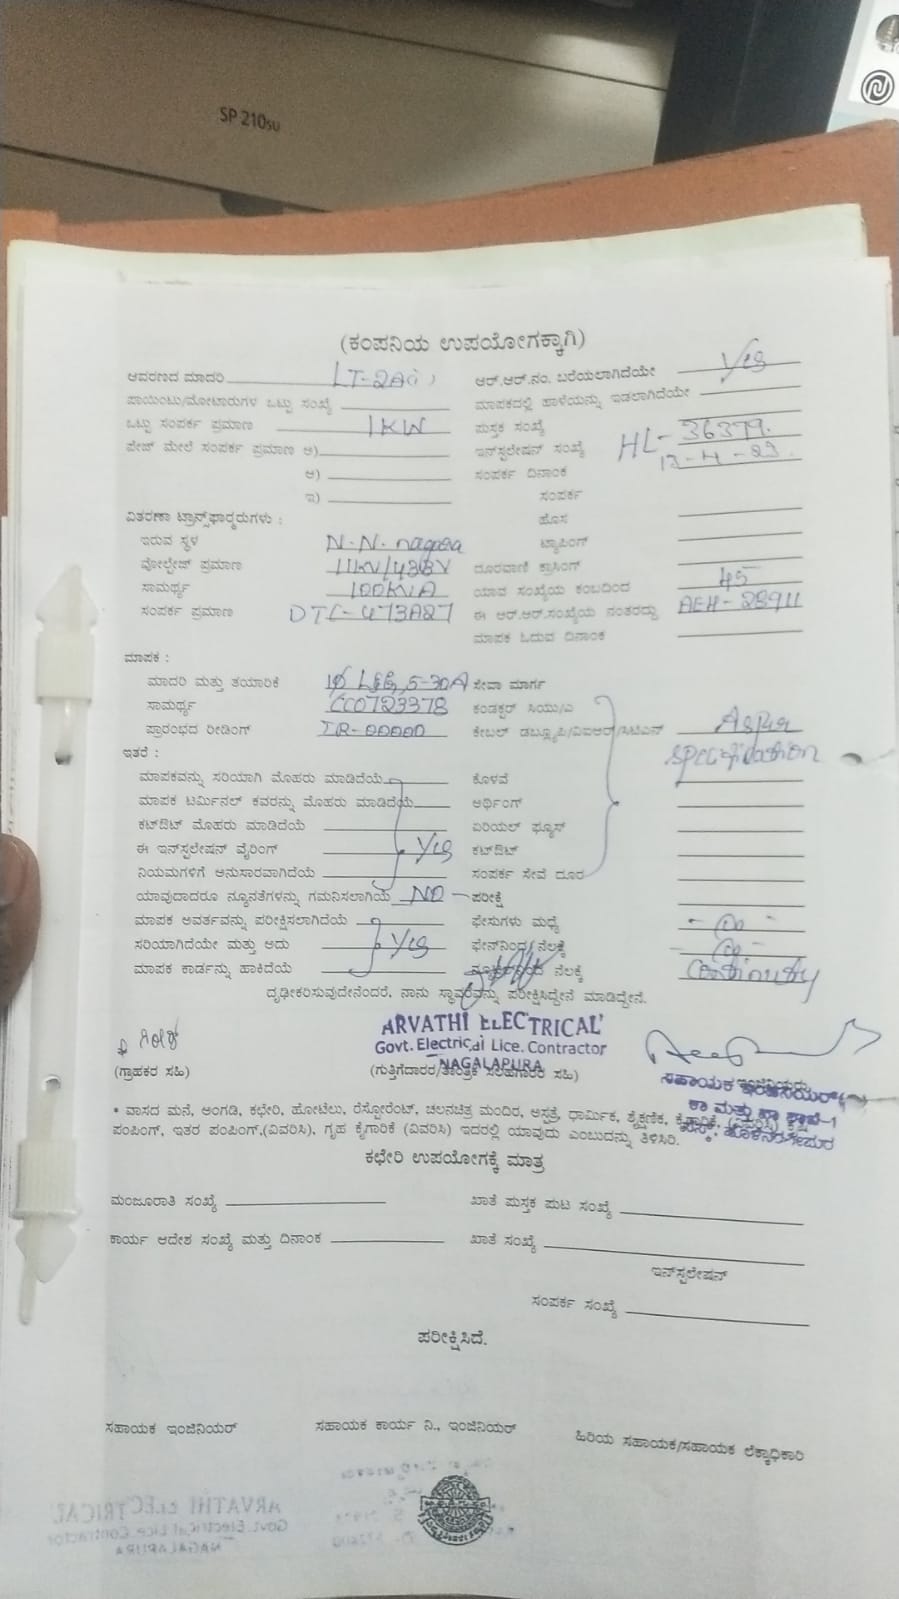 SP 210SU
(ಕಂಪನಿಯ ಉಪಯೋಗಕ್ಕಾಗಿ)
ಆವರಣದ ಮಾದರಿ LT-2A(i) ಆರ್.ಆರ್.ನಂ. ಬರೆಯಲಾಗಿದೆಯೇ Yes
ಪಾಯಿಂಟು/ಮೋಟಾರುಗಳ ಒಟ್ಟು ಸಂಖ್ಯೆ ಮಾಪಕದಲ್ಲಿ ಹಾಳೆಯನ್ನು ಇಡಲಾಗಿದೆಯೇ
ಒಟ್ಟು ಸಂಪರ್ಕ ಪ್ರಮಾಣ 1KW ಪುಸ್ತಕ ಸಂಖ್ಯೆ
ಪೇಜ್ ಮೇಲೆ ಸಂಪರ್ಕ ಪ್ರಮಾಣ ಅ) ಇನ್‌ಸ್ಟಲೇಷನ್ ಸಂಖ್ಯೆ HL-36379.
ಆ) ಸಂಪರ್ಕ ದಿನಾಂಕ
ಇ) ಸಂಪರ್ಕ
ವಿತರಣಾ ಟ್ರಾನ್ಸ್‌ಫಾರ್‍ಮರುಗಳು : ಹೊಸ
ಇರುವ ಸ್ಥಳ N.N. nagara ಟ್ಯಾಪಿಂಗ್
ವೋಲ್ಟೇಜ್ ಪ್ರಮಾಣ 11KV/433V ದೂರವಾಣಿ ಕ್ರಾಸಿಂಗ್
ಸಾಮರ್ಥ್ಯ 100KVA ಯಾವ ಸಂಖ್ಯೆಯ ಕಂಬದಿಂದ 45
ಸಂಪರ್ಕ ಪ್ರಮಾಣ DTC-473A27 ಈ ಆರ್.ಆರ್.ಸಂಖ್ಯೆಯ ನಂತರದ್ದು AEH-28911
ಮಾಪಕ ಓದುವ ದಿನಾಂಕ
ಮಾಪಕ :
ಮಾದರಿ ಮತ್ತು ತಯಾರಿಕೆ 1ø L&G, 5-30A ಸೇವಾ ಮಾರ್ಗ
ಸಾಮರ್ಥ್ಯ ಕಂಡಕ್ಟರ್ ಸಿಯು/ಎ
ಪ್ರಾರಂಭದ ರೀಡಿಂಗ್ IR-00000 ಕೇಬಲ್ ಡಬ್ಲ್ಯೂಪಿ/ವಿಐಆರ್/ಸಿಟಿಎಸ್ As per
ಇತರೆ : specification
ಮಾಪಕವನ್ನು ಸರಿಯಾಗಿ ಮೊಹರು ಮಾಡಿದೆಯೆ ಕೊಳವೆ
ಮಾಪಕ ಟರ್ಮಿನಲ್ ಕವರನ್ನು ಮೊಹರು ಮಾಡಿದೆಯೆ ಅರ್ಥಿಂಗ್
ಕಟ್‌ಔಟ್ ಮೊಹರು ಮಾಡಿದೆಯೆ ಏರಿಯಲ್ ಫ್ಯೂಸ್
ಈ ಇನ್‌ಸ್ಟಲೇಷನ್ ವೈರಿಂಗ್ Yes ಕಟ್‌ಔಟ್
ನಿಯಮಗಳಿಗೆ ಅನುಸಾರವಾಗಿದೆಯೆ ಸಂಪರ್ಕ ಸೇವೆ ದೂರ
ಯಾವುದಾದರೂ ನ್ಯೂನತೆಗಳನ್ನು ಗಮನಿಸಲಾಗಿಯೆ NO ಪರೀಕ್ಷೆ
ಮಾಪಕ ಅವರ್ತವನ್ನು ಪರೀಕ್ಷಿಸಲಾಗಿದೆಯೆ ಫೇಸುಗಳು ಮಧ್ಯೆ
ಸರಿಯಾಗಿದೆಯೇ ಮತ್ತು ಅದು Yes ನೆಲಕ್ಕೆ
ಮಾಪಕ ಕಾರ್ಡನ್ನು ಹಾಕಿದೆಯೆ ನೆಲಕ್ಕೆ Continuity
ದೃಢೀಕರಿಸುವುದೇನೆಂದರೆ, ನಾನು ಸ್ಥಾವರವನ್ನು ಪರೀಕ್ಷಿಸಿದ್ದೇನೆ ಮಾಡಿದ್ದೇನೆ.
ARVATHI ELECTRICAL
Govt. Electrical Lice. Contractor
NAGALAPURA
(ಗ್ರಾಹಕರ ಸಹಿ) (ಗುತ್ತಿಗೆದಾರರ/ತಾಂತ್ರಿಕ ಸಲಹಗಾರರ ಸಹಿ)
ಸಹಾಯಕ ಇಂಜಿನಿಯರ್
* ವಾಸದ ಮನೆ, ಅಂಗಡಿ, ಕಛೇರಿ, ಹೋಟೆಲು, ರೆಸ್ಟೋರೆಂಟ್, ಚಲನಚಿತ್ರ ಮಂದಿರ, ಅಸ್ಪತ್ರೆ, ಧಾರ್ಮಿಕ, ಶೈಕ್ಷಣಿಕ,
ಪಂಪಿಂಗ್, ಇತರ ಪಂಪಿಂಗ್,(ವಿವರಿಸಿ), ಗೃಹ ಕೈಗಾರಿಕೆ (ವಿವರಿಸಿ) ಇದರಲ್ಲಿ ಯಾವುದು ಎಂಬುದನ್ನು ತಿಳಿಸಿರಿ.
ಕಛೇರಿ ಉಪಯೋಗಕ್ಕೆ ಮಾತ್ರ
ಮಂಜೂರಾತಿ ಸಂಖ್ಯೆ ಖಾತೆ ಪುಸ್ತಕ ಪುಟ ಸಂಖ್ಯೆ
ಕಾರ್ಯ ಆದೇಶ ಸಂಖ್ಯೆ ಮತ್ತು ದಿನಾಂಕ ಖಾತೆ ಸಂಖ್ಯೆ
ಇನ್‌ಸ್ಟಲೇಷನ್
ಸಂಪರ್ಕ ಸಂಖ್ಯೆ
ಪರೀಕ್ಷಿಸಿದೆ.
ಸಹಾಯಕ ಇಂಜಿನಿಯರ್ ಸಹಾಯಕ ಕಾರ್ಯ ನಿ., ಇಂಜಿನಿಯರ್ ಹಿರಿಯ ಸಹಾಯಕ/ಸಹಾಯಕ ಲೆಕ್ಕಾಧಿಕಾರಿ